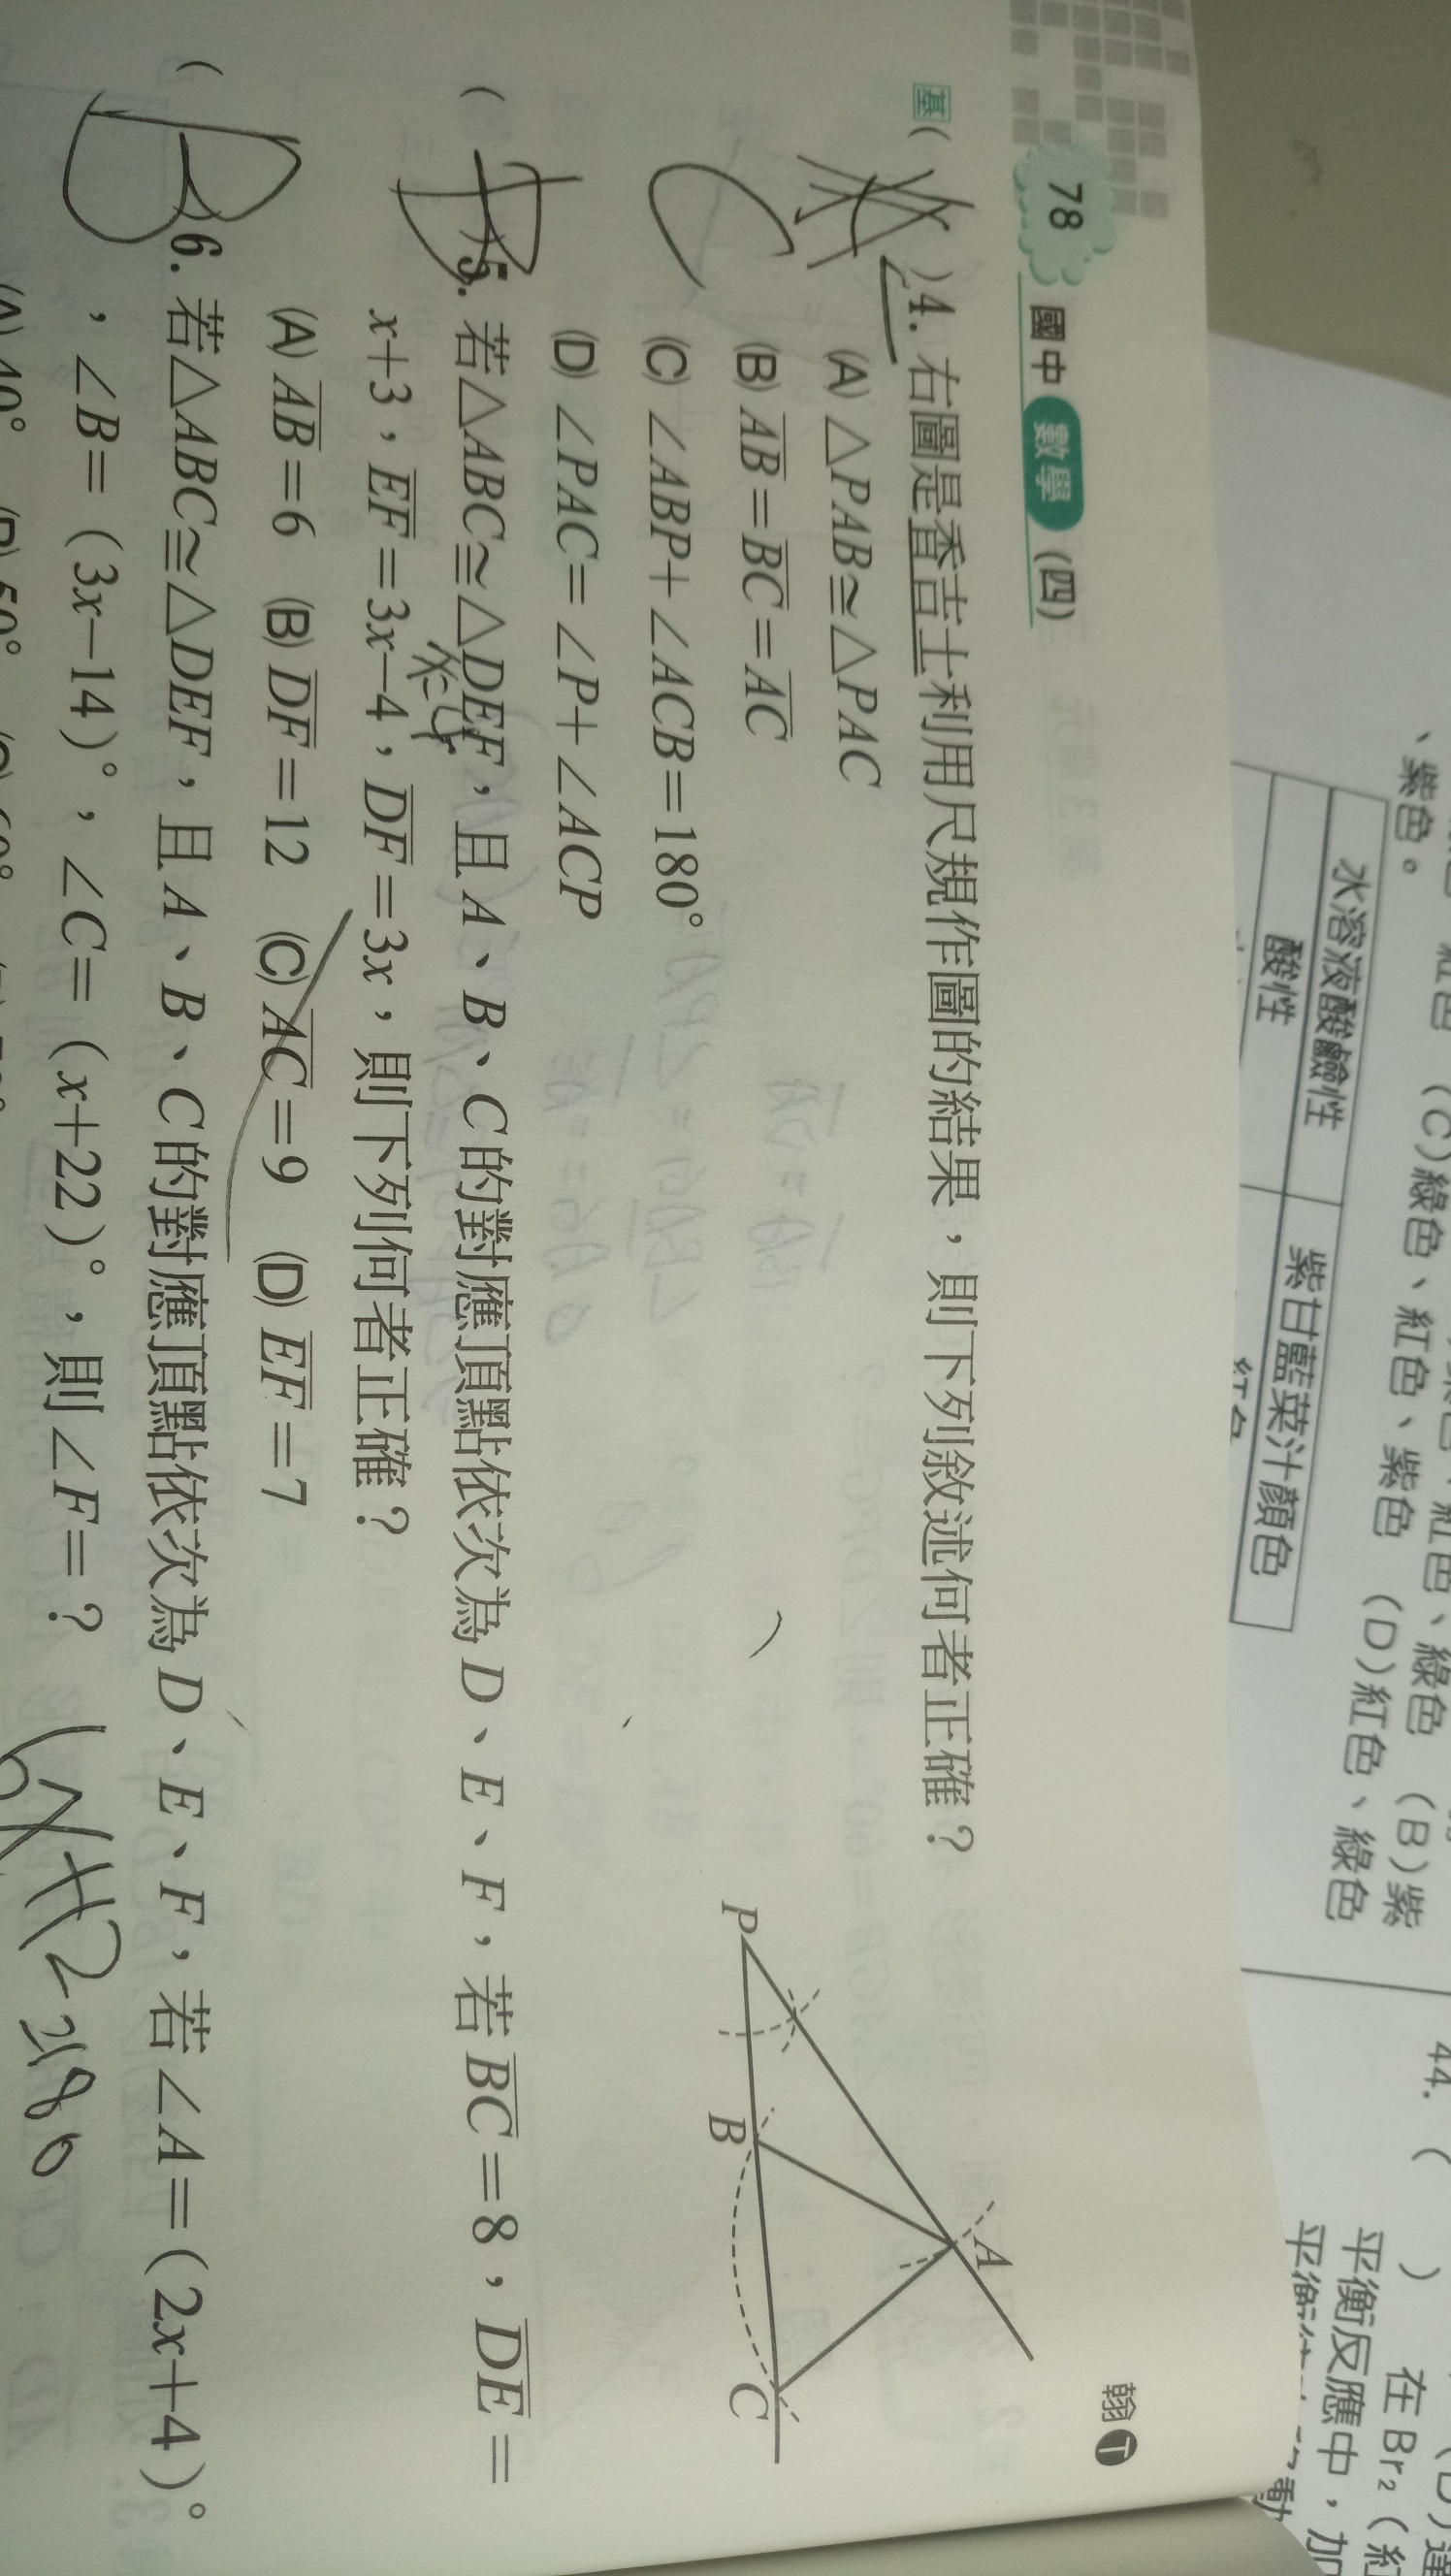 78 國中 數學 (四)
翰 T
基 ( )4. 右圖是香吉士利用尺規作圖的結果，則下列敘述何者正確？
(A) △PAB≅△PAC
(B) AB=BC=AC
(C) ∠ABP+∠ACB=180°
(D) ∠PAC=∠P+∠ACP
C
P
B
A
C
( )5. 若△ABC≅△DEF，且A、B、C的對應頂點依次為D、E、F，若BC=8，DE=
x+3，EF=3x-4，DF=3x，則下列何者正確？
x=4
(A) AB=6 (B) DF=12 (C) AC=9 (D) EF=7
( B 6. 若△ABC≅△DEF，且A、B、C的對應頂點依次為D、E、F，若∠A=(2x+4)°
，∠B=(3x-14)°，∠C=(x+22)°，則∠F=？
6x+12=180
(A) 40°
、紫色。
(C)綠色、紅色、紫色 (D)紅色、綠色
、紅色、綠色 (B)紫
水溶液酸鹼性 紫甘藍菜汁顏色
酸性
44. ( ) 在Br₂(紅
平衡反應中，加